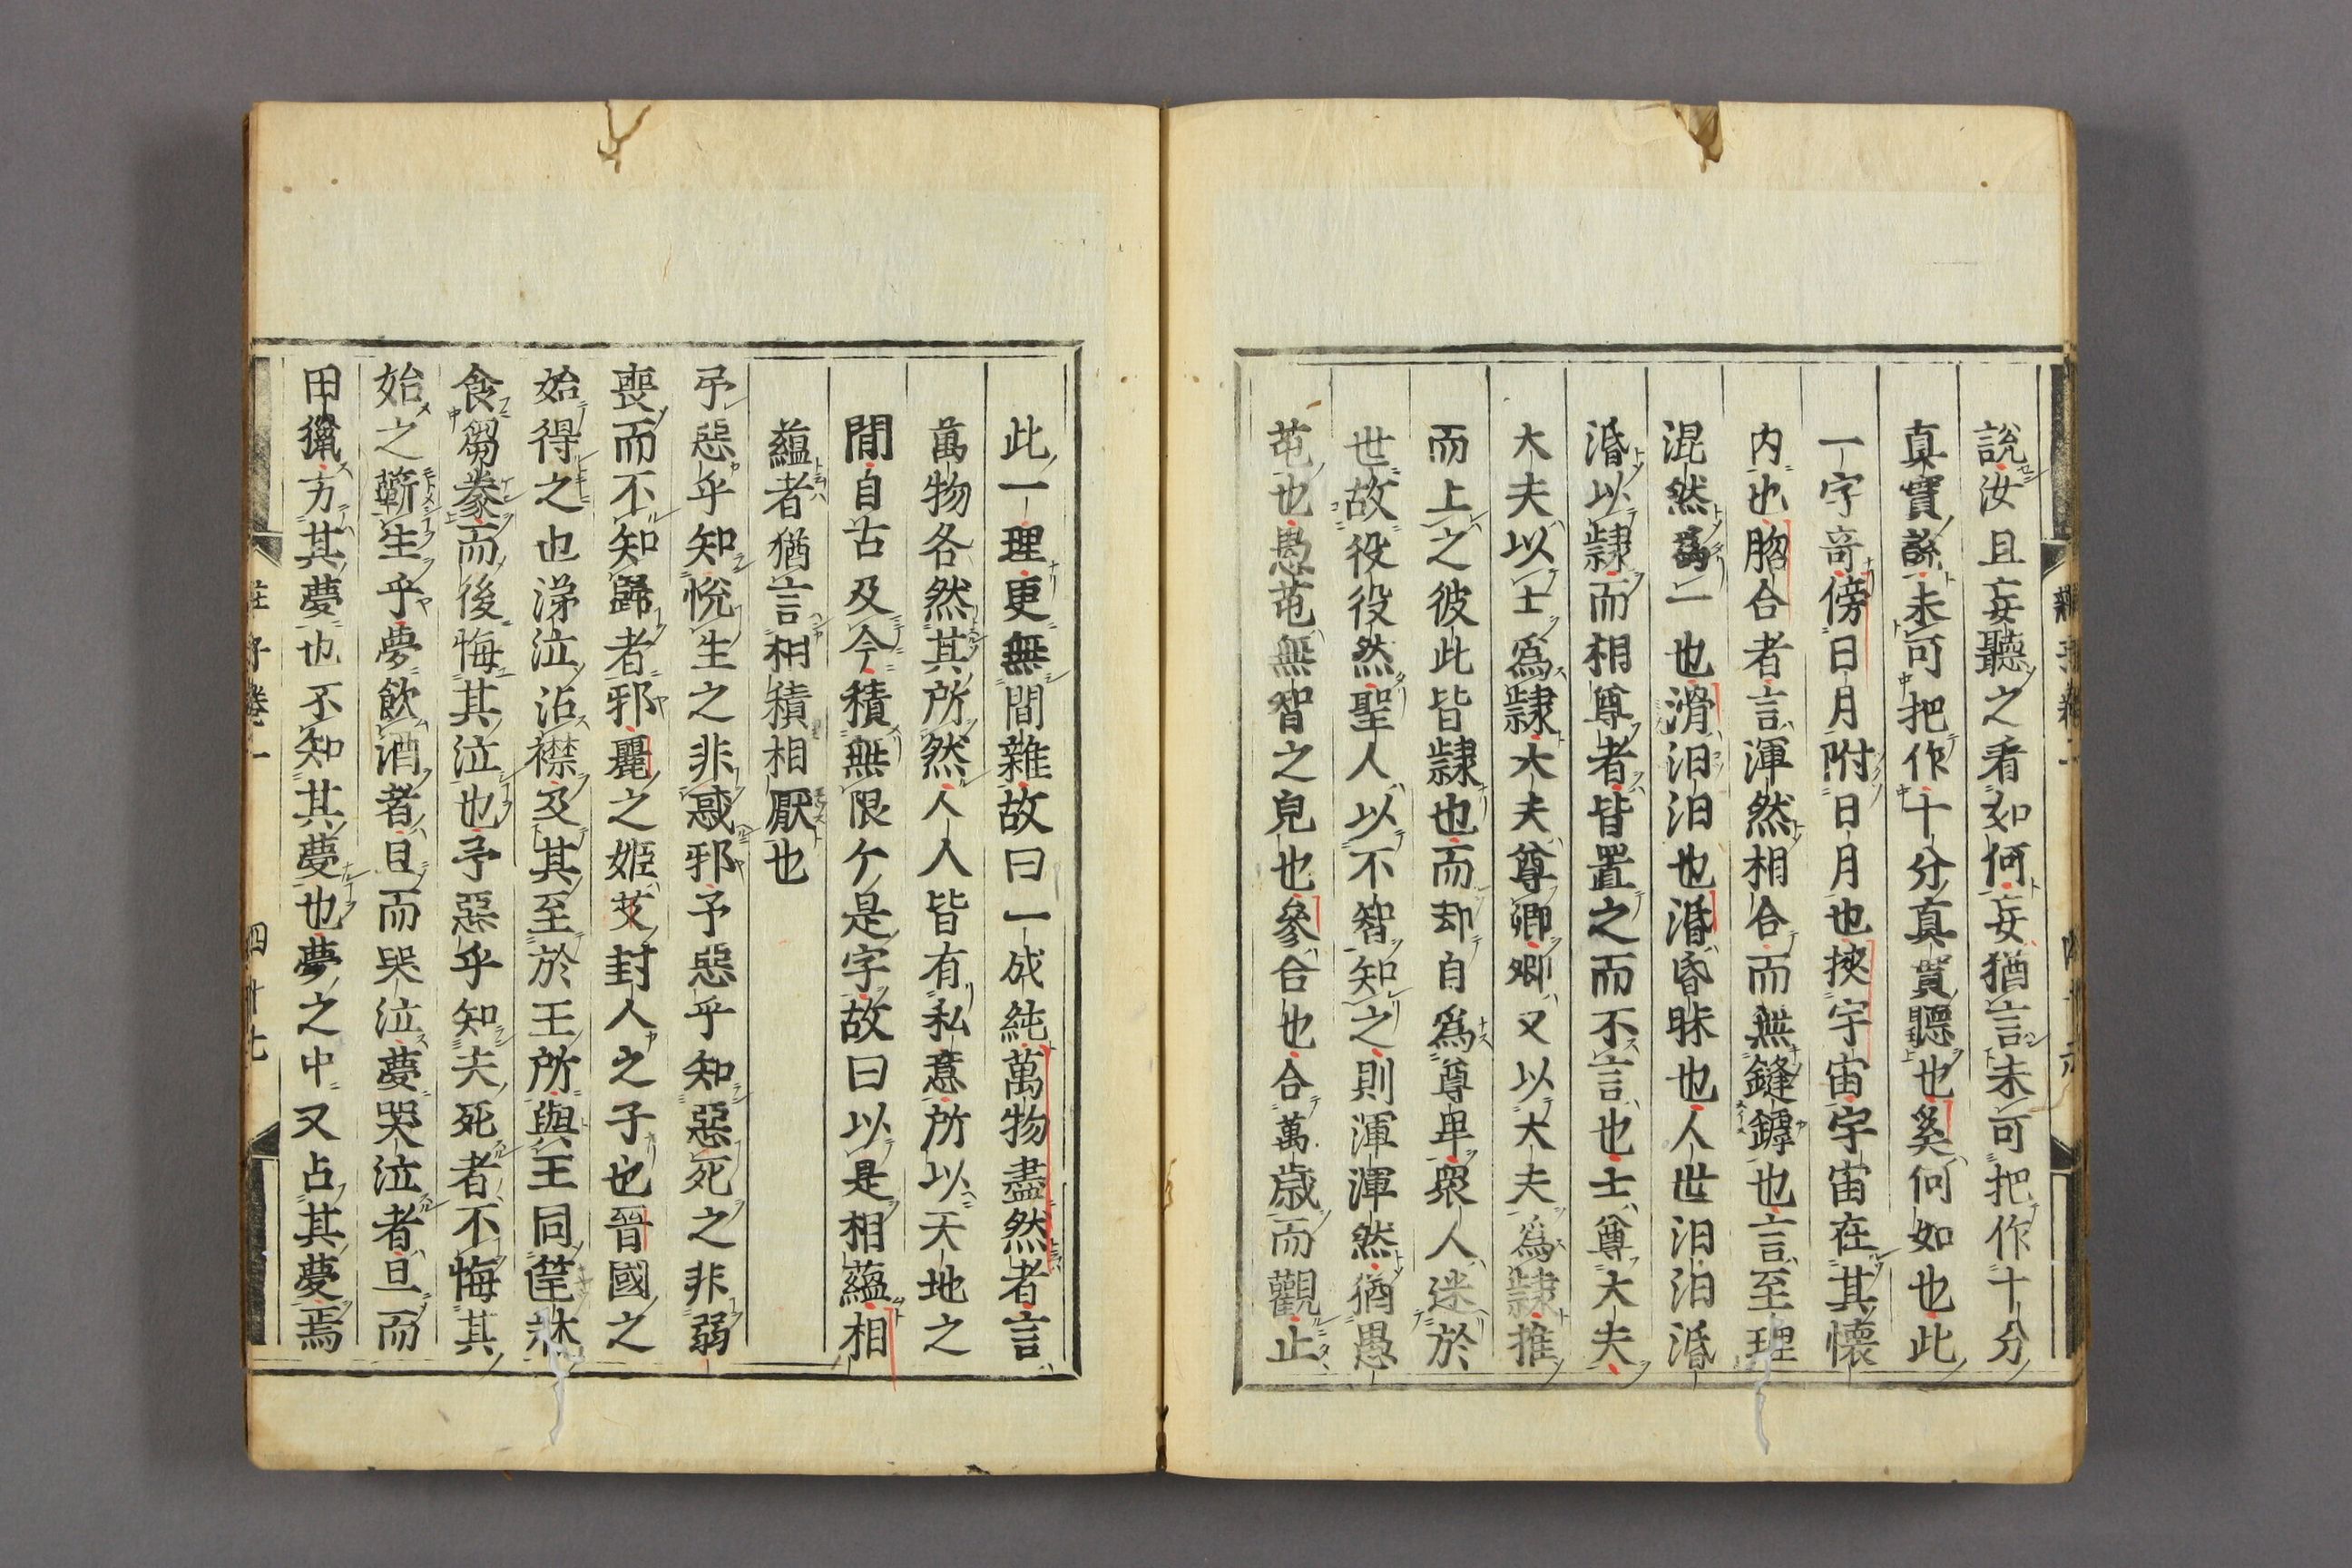 說汝且妄聽之看如何妄猶言未可把作十分
真實話未可把作十分真實聽也奚何如也此
一字奇傍日月附日月也挾宇宙宇宙在其懷
内也脗合者言渾然相合而無縫罅也言至理
混然爲一也滑汨汨也涽昏昧也人世汨汨涽
涽以隷而相尊者皆置之而不言也士尊大夫
大夫以士爲隷大夫尊卿卿又以大夫爲隷推
而上之彼此皆隷也而却自爲尊卑衆人迷於
世故役役然聖人以不智知之則渾渾然猶愚
芚也愚芚無智之皃也參合也合萬歳而觀止
此一理更無間雜故曰一成純萬物盡然者言
萬物各然其所然人人皆有私意所以天地之
間自古及今積無限个是字故曰以是相蘊相
蘊者猶言相積相厭也
予惡乎知悅生之非惑邪予惡乎知惡死之非弱
喪而不知歸者邪麗之姬艾封人之子也晉國之
始得之也涕泣沾襟及其至於王所與王同筐牀
食芻豢而後悔其泣也予惡乎知夫死者不悔其
始之蘄生乎夢飲酒者旦而哭泣夢哭泣者旦而
田獵方其夢也不知其夢也夢之中又占其夢焉
莊子卷一
四十七